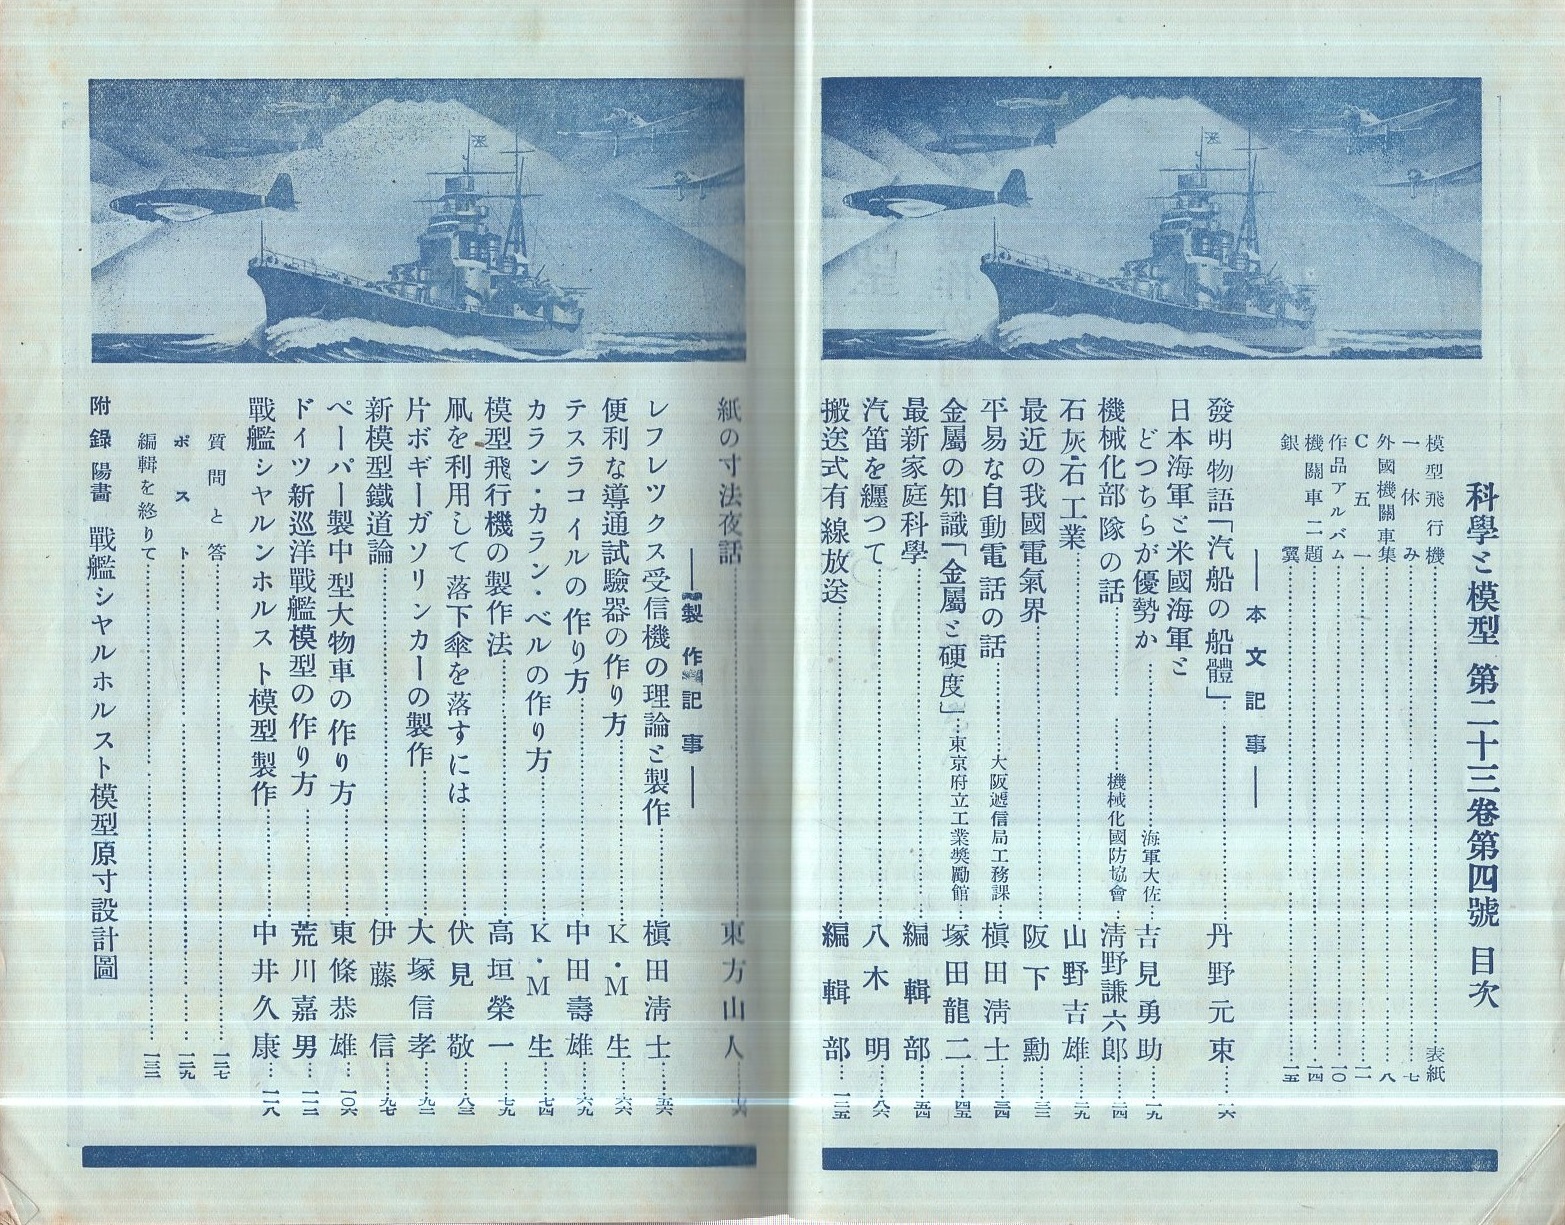 科學と模型 第二十三卷第四號 目次
模型飛行機……表紙
一休み……七
外國機關車集……八
C五一……一一
作品アルバム……一〇
機關車二題……一四
銀翼……一五
―本文記事―
發明物語「汽船の船體」……丹野元東……一六
日本海軍と米國海軍と
どつちらが優勢か……海軍大佐…吉見勇助……一九
機械化部隊の話……機械化國防協會…淸野謙六郞……二四
石灰石工業……山野吉雄……二九
最近の我國電氣界……阪下勳……三二
平易な自動電話の話……大阪遞信局工務課…槇田淸士……三四
金屬の知識「金屬と硬度」……東京府立工業奬勵館…塚田龍二……四五
最新家庭科學……編輯部……五四
汽笛を纒つて……八木明……八六
搬送式有線放送……編輯部……一二五
紙の寸法夜話……東方山人
―製作記事―
レフレツクス受信機の理論と製作……槇田淸士……五六
便利な導通試驗器の作り方……K・M生……六六
テスラコイルの作り方……中田壽雄……六九
カラン・カラン・ベルの作り方……K・M生……七四
模型飛行機の製作法……高垣榮一……七九
凧を利用して落下傘を落すには……伏見敬……八三
片ボギーガソリンカーの製作……大塚信孝……九二
新模型鐵道論……伊藤信……九七
ペーパー製中型大物車の作り方……東條恭雄……一〇六
ドイツ新巡洋戰艦模型の作り方……荒川嘉男……一一二
戰艦シヤルンホルスト模型製作……中井久康……一一八
質問と答……一二七
ポスト……一二九
編輯を終りて……一三二
附錄 陽畫 戰艦シヤルホルスト模型原寸設計圖